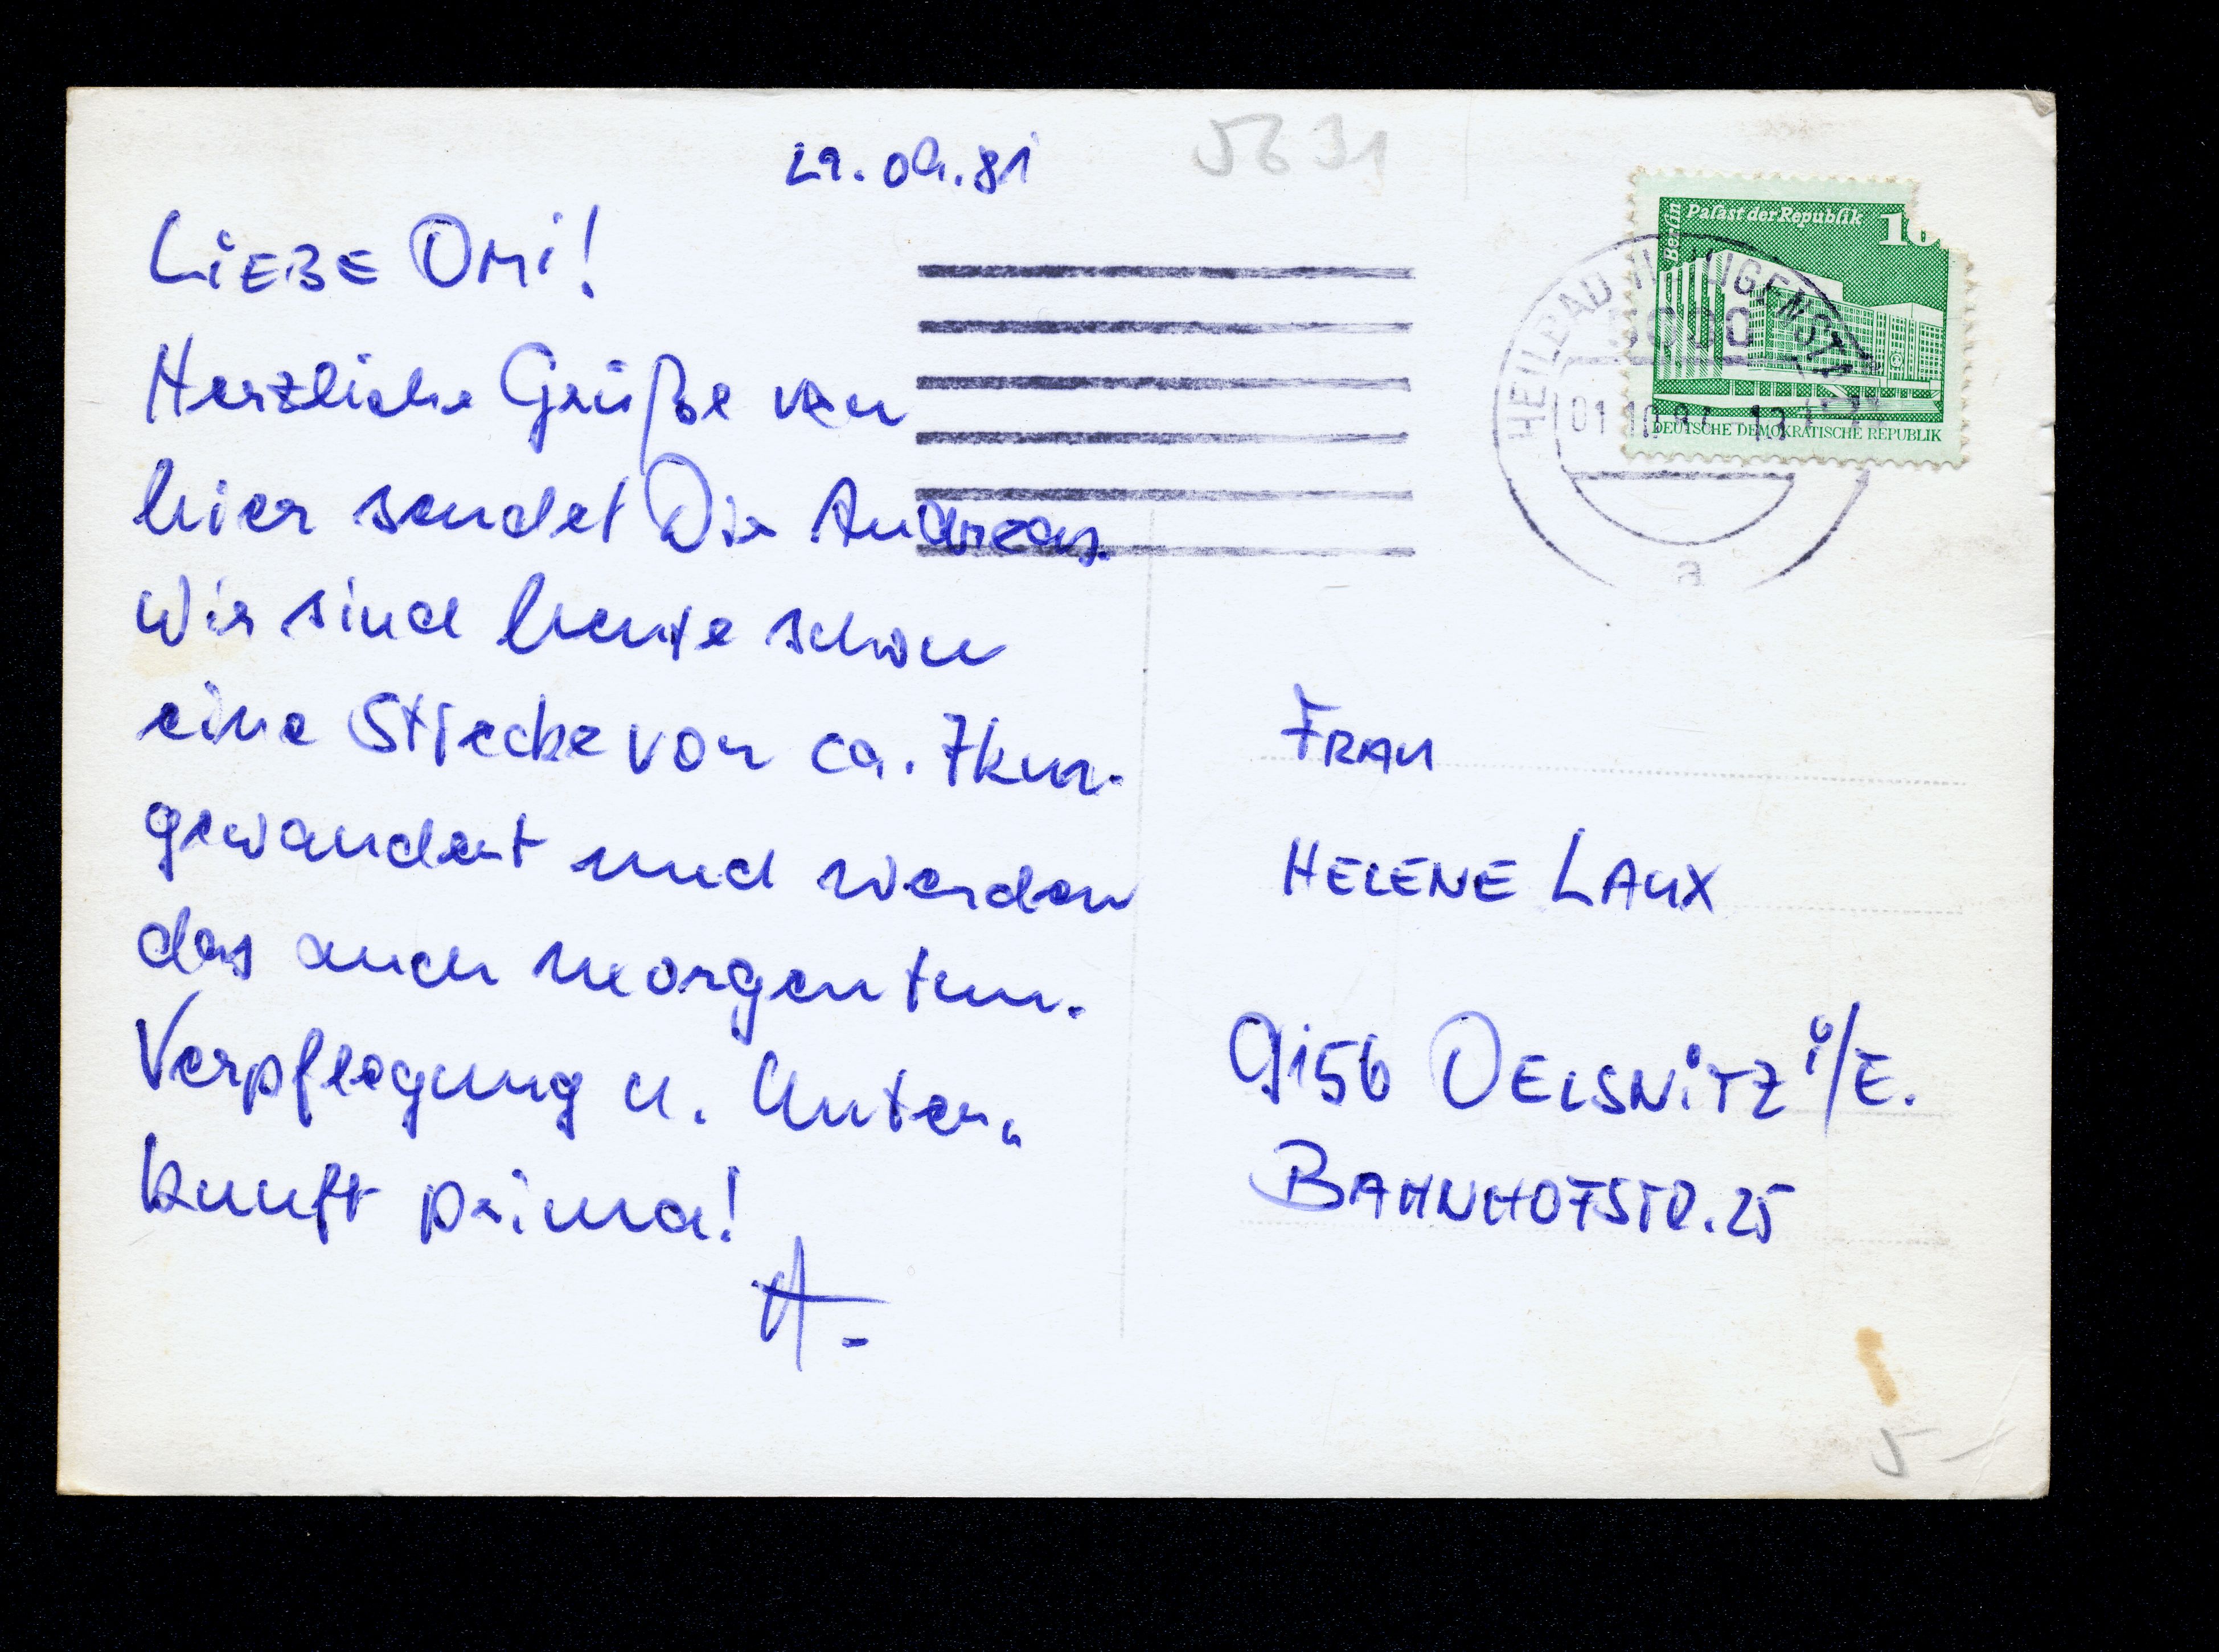 29.09.81
5631
LIEBE OMI!
Herzliche Grüße von
hier sendet Dir Andreas.
Wir sind heute schon
eine Strecke von ca. 7km.
gewandert und werden
das auch morgen tun.
Verpflegung u. Unter-
kunft prima!
A.
Berlin
Palast der Republik
10
DEUTSCHE DEMOKRATISCHE REPUBLIK
HEILBAD
01.10.81
a
FRAU
HELENE LAUX
9156 OELSNITZ i/E.
BAHNHOFSTR. 25
5-